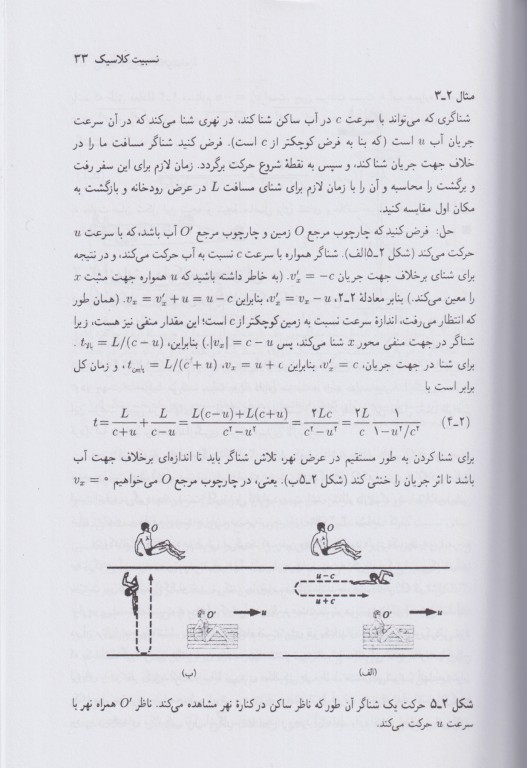 نسبیت کلاسیک ۳۳
مثال ۲ـ۳
شناگری که می‌تواند با سرعت c در آب ساکن شنا کند، در نهری شنا می‌کند که در آن سرعت
جریان آب u است (که بنا به فرض کوچکتر از c است). فرض کنید شناگر مسافت ما را در
خلاف جهت جریان شنا کند، و سپس به نقطهٔ شروع حرکت برگردد. زمان لازم برای این سفر رفت
و برگشت را محاسبه و آن را با زمان لازم برای شنای مسافت L در عرض رودخانه و بازگشت به
مکان اول مقایسه کنید.
حل: فرض کنید که چارچوب مرجع O زمین و چارچوب مرجع O′ آب باشد، که با سرعت u
حرکت می‌کند (شکل ۲ـ۵الف). شناگر همواره با سرعت c نسبت به آب حرکت می‌کند، و در نتیجه
برای شنای برخلاف جهت جریان v′x = −c. (به خاطر داشته باشید که u همواره جهت مثبت x
را معین می‌کند.) بنابر معادلهٔ ۲ـ۲، v′x = vx − u، بنابراین vx = v′x + u = u − c. (همان طور
که انتظار می‌رفت، اندازهٔ سرعت نسبت به زمین کوچکتر از c است؛ این مقدار منفی نیز هست، زیرا
شناگر در جهت منفی محور x شنا می‌کند، پس |vx| = c − u.) بنابراین، tبالا = L/(c − u).
برای شنا در جهت جریان، v′x = c، بنابراین vx = u + c، tپایین = L/(c + u)، و زمان کل
برابر است با
t = L/(c+u) + L/(c−u) = (L(c−u)+L(c+u))/(c²−u²) = ۲Lc/(c²−u²) = ۲L/c ۱/(۱−u²/c²) (۲ـ۴)
برای شنا کردن به طور مستقیم در عرض نهر، تلاش شناگر باید تا اندازه‌ای برخلاف جهت آب
باشد تا اثر جریان را خنثی کند (شکل ۲ـ۵ب). یعنی، در چارچوب مرجع O می‌خواهیم vx = ۰
O
O
u−c
u+c
O′
u
O′
u
(الف)
(ب)
شکل ۲ـ۵ حرکت یک شناگر آن طور که ناظر ساکن در کنارهٔ نهر مشاهده می‌کند. ناظر O′ همراه نهر با
سرعت u حرکت می‌کند.